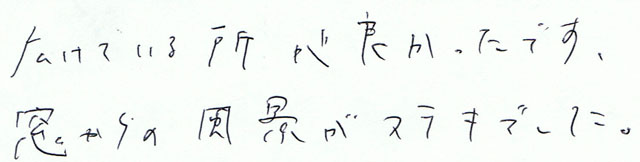 んけている所が良かったです、
窓からの風景がステキでした。